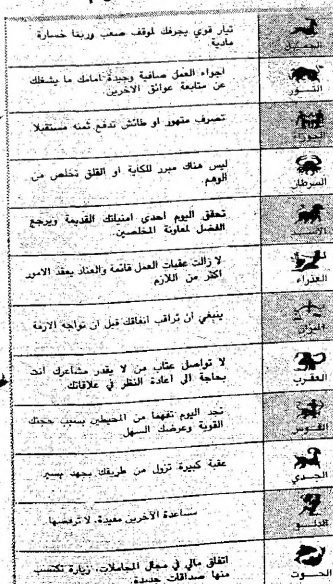 تيار قوي يجرفك لموقف صعب وربما خسارة
مادية
الحمل
اجواء العمل صافية وجيدة امامك ما يشغلك
عن متابعة عوائق الاخرين
الثور
تصرف متهور او طائش تدفع ثمنه مستقبلا
الجوزاء
ليس هناك مبرر للكآبة او القلق تخلص من
الوهم
السرطان
تحقق اليوم احدى امنياتك القديمة ويرجع
الفضل لمعاونة المخلصين
الاسد
لا زالت عقبات العمل قائمة والعناد يعقد الامور
اكثر من اللازم
العذراء
ينبغي ان تراقب انفاقك قبل ان تواجه الازمة
الميزان
لا تواصل عتاب من لا يقدر مشاعرك انت
بحاجة الى اعادة النظر في علاقاتك
العقرب
تجد اليوم تفهما من المحيطين بسبب حجتك
القوية وعرضك السهل
القوس
عقبة كبيرة تزول من طريقك بجهد يسير
الجدي
مساعدة الآخرين مفيدة، لا ترفضها
الدلو
اتفاق مالي في مجال المجاملات، زيارة تكتسب
منها صداقات جديدة
الحوت